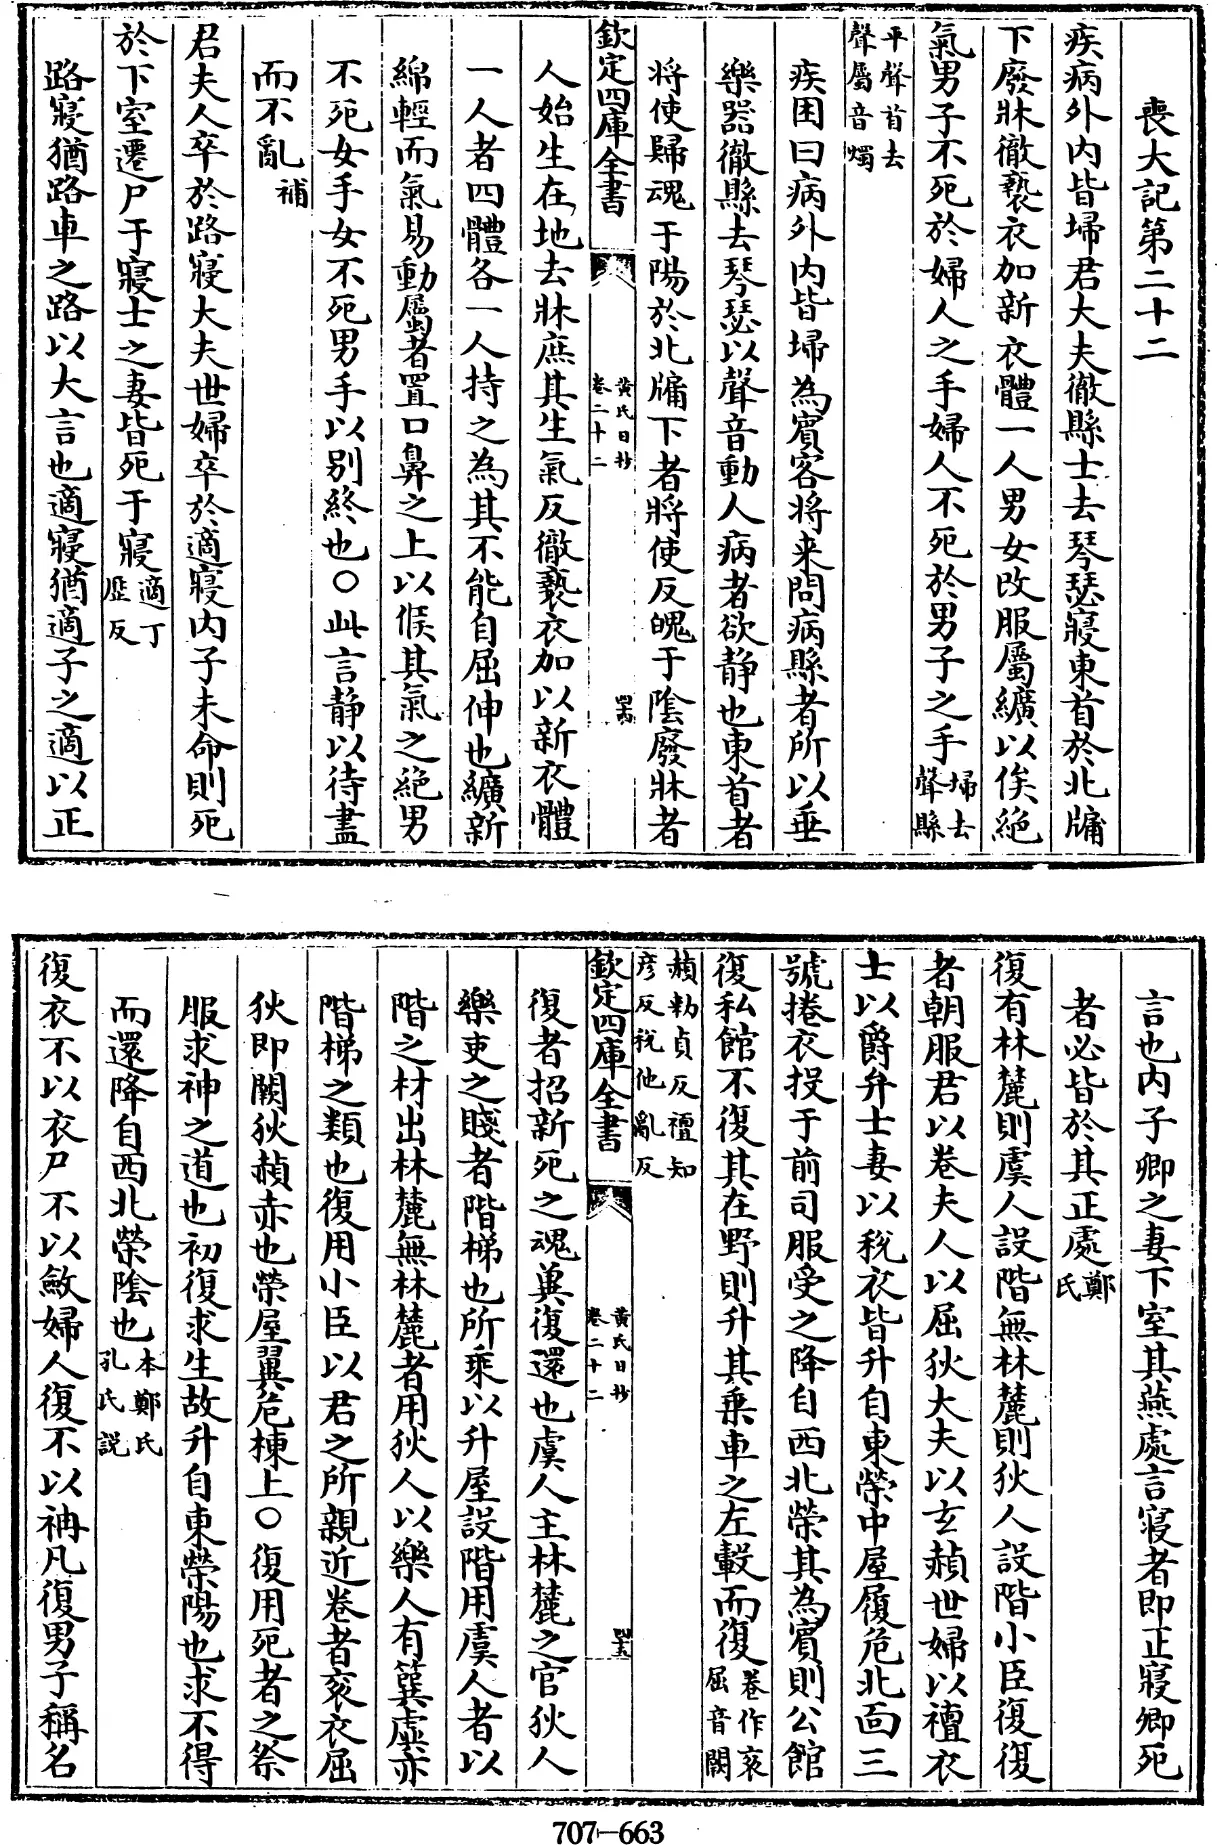 喪大記第二十二
疾病外内皆埽君大夫徹縣士去琴瑟寢東首於北牖
下廢牀徹褻衣加新衣體一人男女改服屬纊以俟絶
氣男子不死於婦人之手婦人不死於男子之手埽去聲縣
平聲首去聲屬音燭
疾困曰病外内皆埽為賓客将来問病縣者所以垂
樂器徹縣去琴瑟以聲音動人病者欲静也東首者
将使歸魂于陽於北牖下者將使反魄于陰廢牀者
欽定四庫全書
黄氏日抄
卷二十二
人始生在地去牀庶其生氣反徹褻衣加以新衣體
一人者四體各一人持之為其不能自屈伸也纊新
綿輕而氣易動屬者置口鼻之上以候其氣之絶男
不死女手女不死男手以别終也○此言静以待盡
而不亂補
君夫人卒於路寢大夫世婦卒於適寢内子未命則死
於下室遷尸于寢士之妻皆死于寢適丁歴反
路寢猶路車之路以大言也適寢猶適子之適以正
言也内子卿之妻下室其燕處言寢者即正寢卿死
者必皆於其正處鄭氏
復有林麓則虞人設階無林麓則狄人設階小臣復復
者朝服君以卷夫人以屈狄大夫以玄赬世婦以襢衣
士以爵弁士妻以税衣皆升自東榮中屋履危北面三
號捲衣投于前司服受之降自西北榮其為賓則公館
復私館不復其在野則升其乗車之左轂而復卷作衮屈音闕
赬勅貞反襢知彦反税他亂反
欽定四庫全書
黄氏日抄
卷二十二
復者招新死之魂兾復還也虞人主林麓之官狄人
樂吏之賤者階梯也所乘以升屋設階用虞人者以
階之材出林麓無林麓者用狄人以樂人有簨虡亦
階梯之類也復用小臣以君之所親近卷者衮衣屈
狄即闕狄赬赤也榮屋翼危棟上○復用死者之祭
服求神之道也初復求生故升自東榮陽也求不得
而還降自西北榮陰也本鄭氏孔氏説
復衣不以衣尸不以斂婦人復不以袡凡復男子稱名
707-663